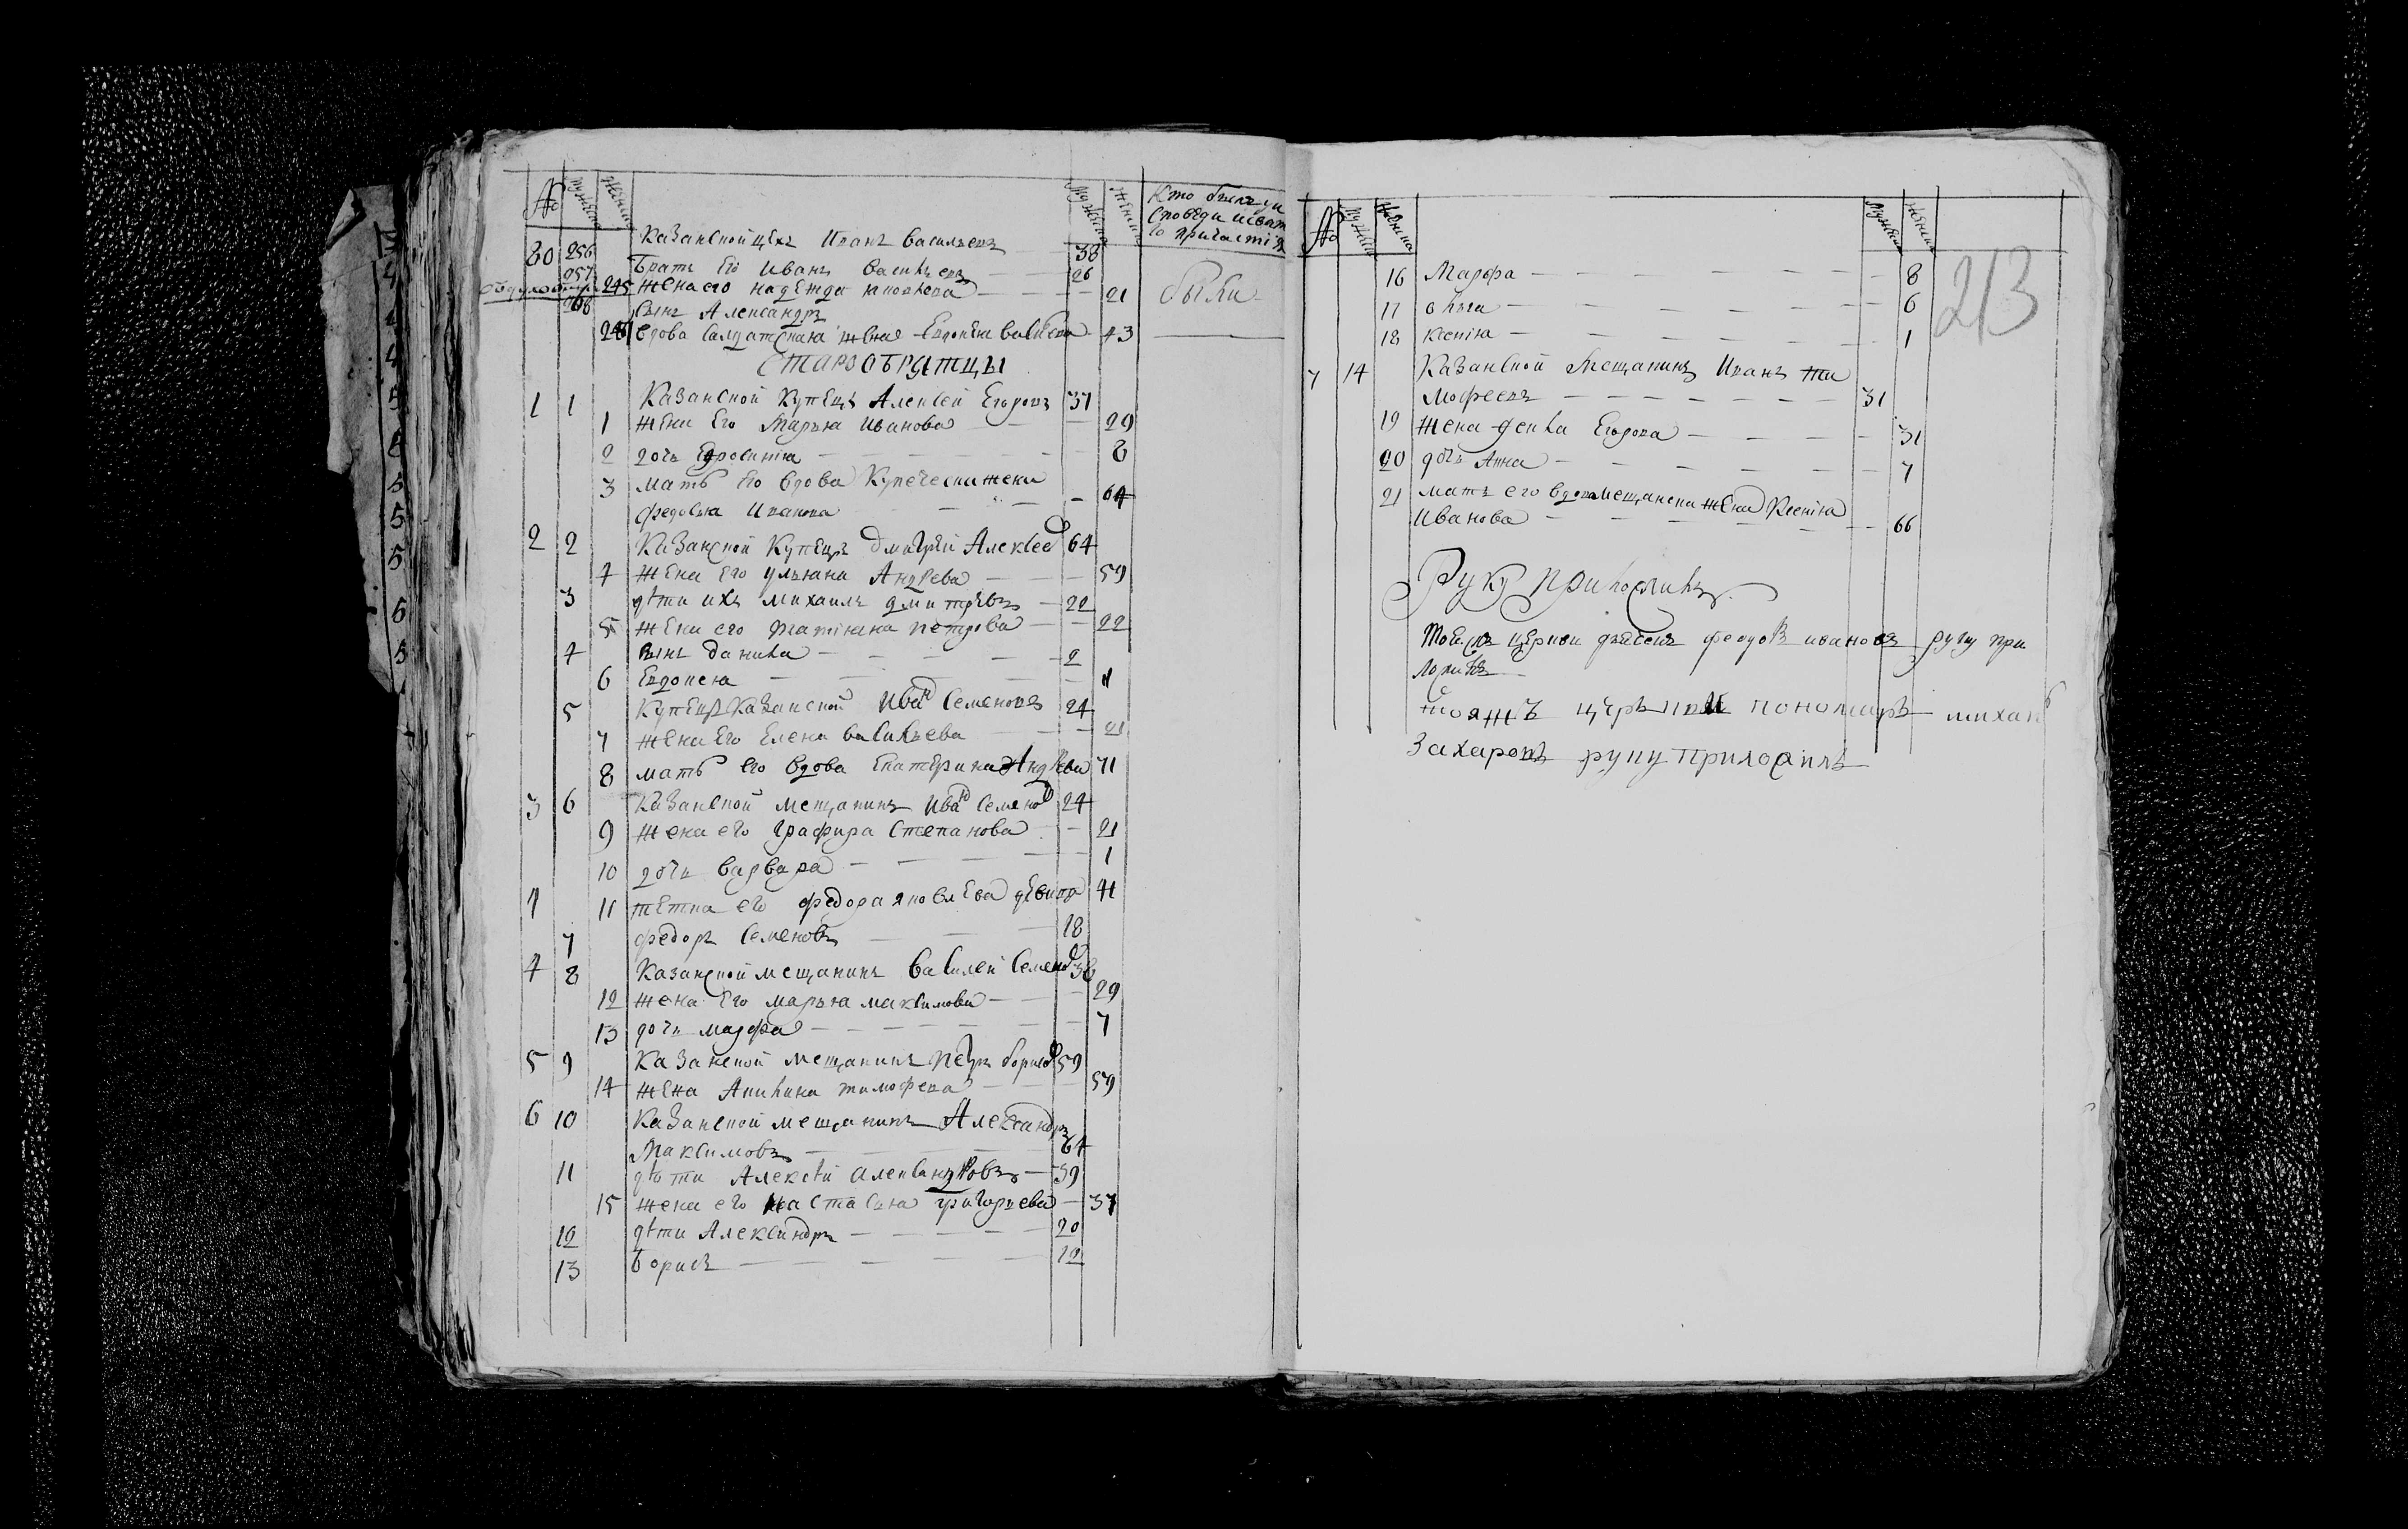 № Мужеска Женска Мужеска Женска Кто былъ у и
споведи исвят
го причастія
30 256 Казанской цехъ Иванъ Васильевъ 38
257 Братъ Его Иванъ Васильевъ 26
245 жена его надежда яковлева 21 были
258 сынъ Александръ
246 вдова салдатская жена Евдокея Васильева 43
Старообрятцы
1 1 Казанской Купецъ Алексей Егоровъ 37
1 жена Его Марья Иванова 29
2 дочь Ефросинія 8
3 мать Его вдова Купеческа жена
федосья Иванова 64
2 2 Казанской Купецъ Дмитрей Алексеев 64
4 жена Его ульяна Андреева 59
3 дѣти ихъ михаилъ дмитревъ 22
5 жена его татіяна петрова 22
4 сынъ данила 2
6 Евдокея
5 Купецъ Казанской Иван Семеновъ 24
7 жена Его Елена васильева 21
8 мать его вдова Екатерина Андреева 71
3 6 Казанской мещанинъ Иван Семенов 24
9 жена его Графира Степанова 21
10 дочь варвара 1
11 тетка его федора яковлева девица 41
7 федоръ Семеновъ 18
4 8 Казанской мещанинъ Василей Семенов 36
12 жена Его марья максимова 29
13 дочь марфа 7
5 9 Казанской мещанинъ Петръ борисов 59
14 жена Акилина тимофева 59
6 10 Казанской мещанинъ Александръ
Максимовъ 64
11 дѣти Алексѣй александровъ 39
15 жена его настасья григорьева 37
12 дѣти Александръ 20
13 Борисъ 12
№ Мужеска Женска Мужеска Женска
213
16 Марфа 8
17 ольга 6
18 ксенія 1
7 14 Казанской Мещанинъ Иванъ ти
мофеевъ 31
19 жена фекла Егорова 31
20 дочь Анна 7
21 мать его вдова мещанска жена Ксенія
Иванова 66
Руку приложилъ
тоежъ церкви дьячекъ феодоръ ивановъ руку при
ложилъ
тояжъ церкви пономарь михаил
Захаровъ руку приложилъ